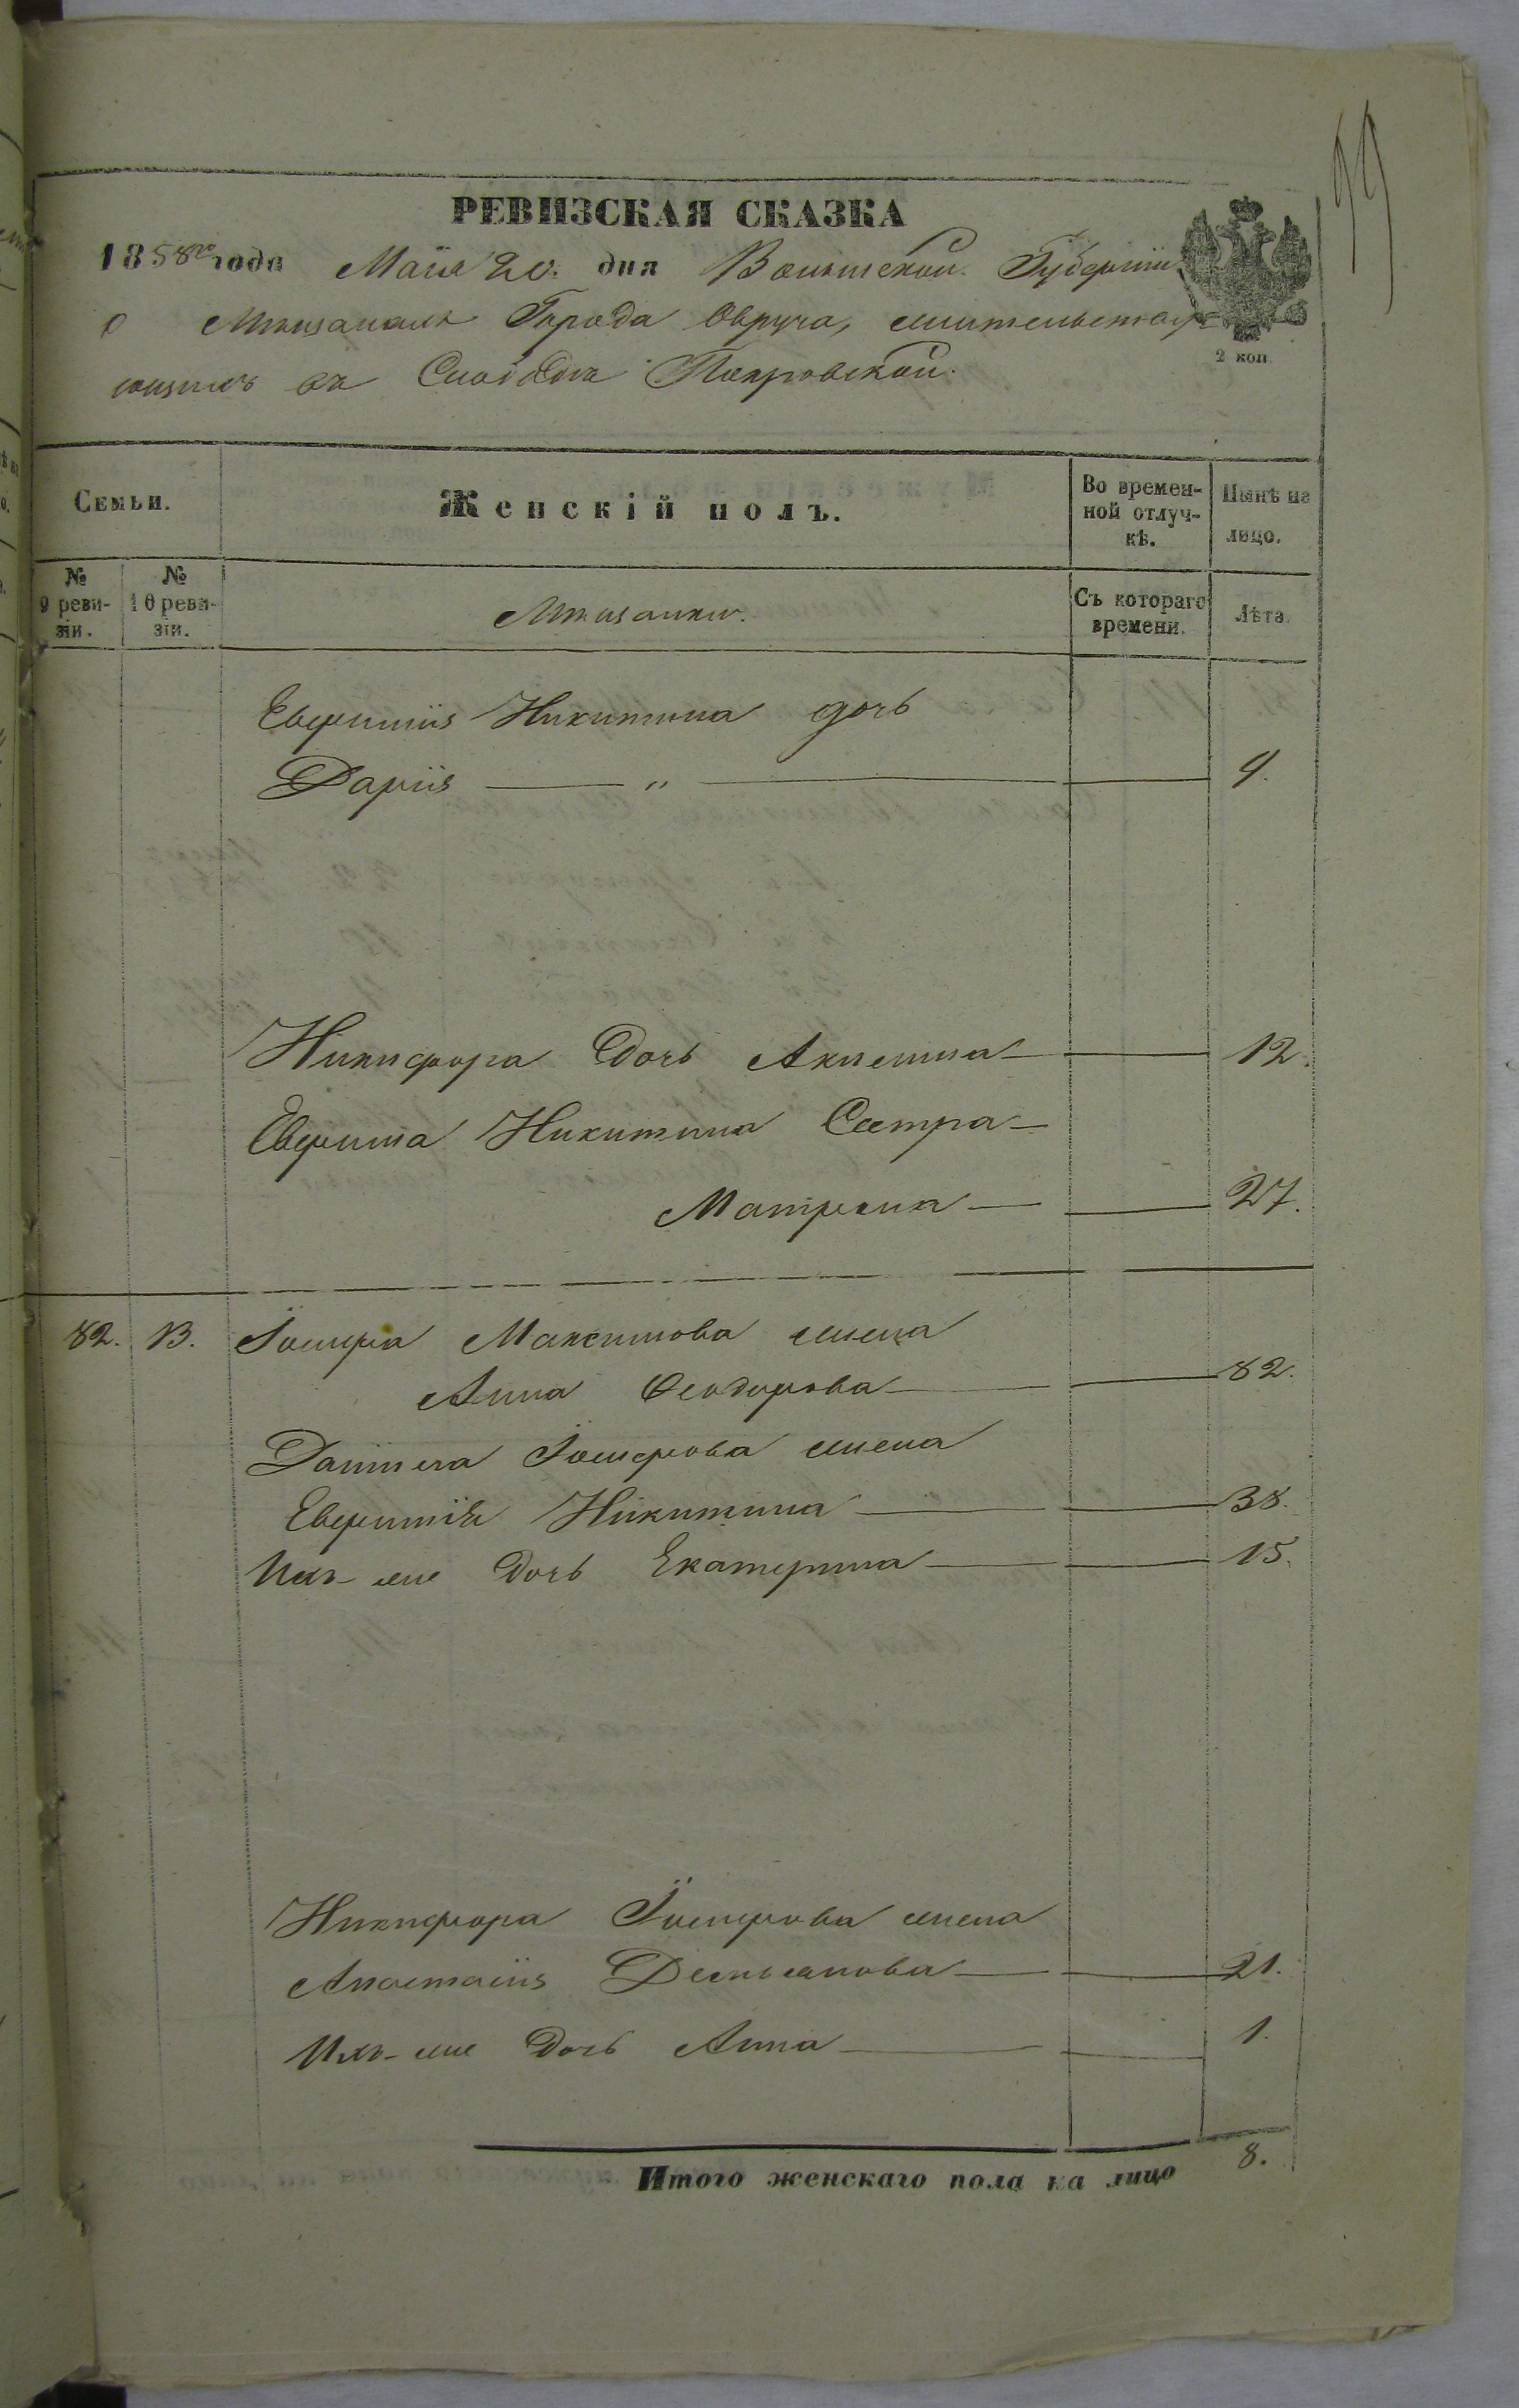 99
РЕВИЗСКАЯ СКАЗКА
1858го года Маія 20. дня Волынской Губерніи
О Мѣщанахъ Города Овруча, жительству-
ющихъ въ Слободѣ Покровской.
2 коп.
Семьи.
Женскій полъ.
Во времен-
ной отлуч-
кѣ.
Нынѣ на
лицо.
№
9 реви-
зіи.
№
10 реви-
зіи.
Мѣщанки.
Съ котораго
времени.
Лѣта.
Евфиміи Никитина дочь
Дарія — " — 9.
Никифора дочь Акилина — 12.
Евфима Никитина Сестра —
Матрона — 27.
82. 13. Іосифа Максимова жена
Анна Феодорова — 82.
Даніила Іосифова жена
Евфимія Никитина — 38.
Ихъ-же дочь Екатерина — 15.
Никифора Іосифова жена
Анастасія Демьянова — 21.
Ихъ-же дочь Анна — 1.
Итого женскаго пола на лицо 8.